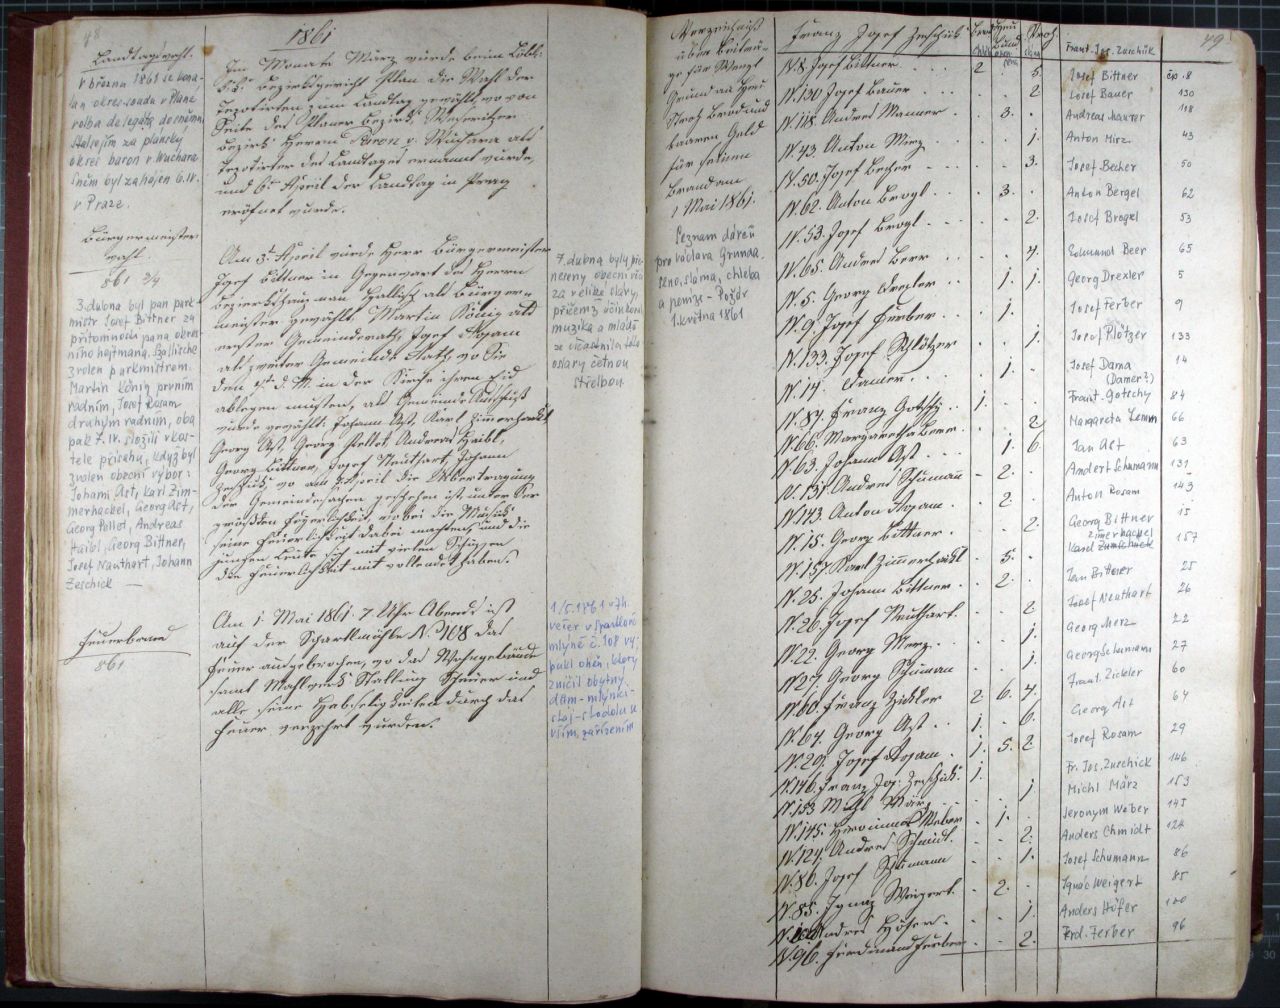 48
1861
Landtagswahl.
V březnu 1861 se kona-
la u okres. soudu v Plané
volba delegáta do sněmu,
Stal se jím za plánský
okres baron v. Wuchara
Sněm byl zahájen 6.IV.
v Praze.
Im Monate März wurde beim Löbl.
k. k. Bezirksgericht Plan die Wahl der
Depotirten zum Landtag gewählt, wo von
Seite des Planer Bezirks, Weseritzer
Bezirk Herrn Baron v. Wuchara als
Depotirter des Landtages ernannt wurde,
und 6ten April der Landtag in Prag
eröfnet wurde.
Bürgermeister
wahl
861 3/4
3. dubna byl pan purk-
mistr Josef Bittner za
přítomnosti pana okres-
ního hejtmana Hallische
zvolen purkmistrem.
Martin König prvním
radním, Josef Rosam
druhým radním, oba
pak 7. IV. složili v kos-
tele přísahu, když byl
zvolen obecní výbor:
Johann Ast, Karl Zim-
merhackel, Georg Ast,
Georg Pellet, Andreas
Haibl, Georg Bittner,
Josef Nauthart, Johann
Zeschick —
Am 3t April wurde Herr Bürgermeister
Josef Bittner in Gegenwart des Herrn
Bezirkshauptman Hallisch als Bürger=
meister gewählt. Martin König als
erster Gemeinderath, Josef Rosam
als zweiter Gemeinde Rath, wo Sie
den 7t d. M. in der Kirche ihren Eid
ablegen mußten, als Gemeinde Ausschuß
wurde gewählt Johann Ast, Karl Zimmerhackl,
Georg Ast, Georg Pellet, Andreas Haibl,
Georg Bittner, Josef Neuthart, Johann
Zeschick, wo am 7 April die Übertragung
der Gemeindesachen geschehen ist unter der
größten Feyerlichkeit wobei die Musick
seine Feuerlichkeit dabei machten, und die
jungen Leute sich mit vielen Schüßen
die Feuerlichkeit mit vollendet haben.
7. dubna byly při-
neseny obecní věci
za veliké slávy,
přičemž účinkovala
muzika a mládež
se účastnila této
oslavy četnou
střelbou
Feuerbrand
861
Am 1 Mai 1861. 7 Uhr Abends ist
auf der Schartlmühle No 108 das
Feuer ausgebrochen, wo das Wohngebäude
samt Mahlwerk Stallung Scheuer und
alle seine Habseligkeiten durch das
Feuer verzehrt wurden.
1/5. 1861 v 7h.
večer v Špartlově
mlýně č. 108 vy-
pukl oheň, který
zničil obytný
dům - mlýnici-
stáj - stodolu a
vším zařízením
49
Verzeichniß
über Beiträ-
ge für Wenzl
Grund an Heu
Stroh Brod und
baaren Geld
für seinen
Brand am
1 Mai 1861.
Seznam dárců
pro Václava Grunda
seno, sláma, chleba
a peníze - Požár
1. května 1861
Franz Josef Zeschick Brod Heu Bund Stroh Frant. Jos. Zueschük
N. 8. Josef Bittner 2 . 5. Josef Bittner čp. 8
N. 130 Josef Bauer . . 2 Josef Bauer 130
N. 118. Andres Maurer . 3. . Andreas Maurer 118
N. 43. Anton Merz . . 1. Anton Mirz 43
N. 50. Josef Becher . . 3. Josef Becher 50
N. 62. Anton Brogl . 3. . Anton Bergel 62
N. 53. Josef Brogl . . 2. Josef Brogel 53
N. 65. Andres Beer . . 4. Edmund Beer 65
N. 5. Georg Drexler . 1. 1 Georg Drexler 5
N. 9. Josef Ferber . 1. . Josef Ferber 9
N. 133. Josef Plötzer . . 1. Josef Plötzer 133
N. 14. Damer . 1. . Josef Dama 14
(Damer?)
N. 84. Franz Gotschy 1. . . Frant. Gotschy 84
N. 66. Margaretha Lemm . . 2 Margareta Lemm 66
N. 63. Johann Ast . 1. 6. Jan Ast 63
N. 131. Andres Schuman . 2. . Andert Schumann 131
N. 143. Anton Rosam . 2 . Anton Rosam 143
N. 15. Georg Bittner . . 2. Georg Bittner 15
N. 157. Karl Zimmerhackl . 5. . Karel Zimerhackel 157
N. 25. Johann Bittner . 2. . Jan Bittner 25
N. 26. Josef Neuthart . . 2 Josef Neuthart 26
N. 22. Georg Merz . . 1. Georg Merz 22
N. 27. Georg Schuman . . 1. Georg Schumann 27
N. 60. Franz Zickler 2. 6. 4. Frant. Zickler 60
N. 64. Georg Ast 1. . 6. Georg Ast 64
N. 29. Josef Rosam 1. 5. 2 Josef Rosam 29
N. 146. Franz Jos. Zeschick 1. . . Fr. Jos. Zueschick 146
N. 153 Michl März . . 1. Michl März 153
N. 145. Hieronimus Weber . 1. . Jeronym Weber 145
N. 124. Andres Schmidt . . 2. Anders Chmidt 124
N. 86. Josef Schumann . . 1. Josef Schumann 86
N. 85. Ignaz Weigert . 2. . Ignác Weigert 85
N. 100 Andres Höfer . . 1. Anders Höfer 100
N. 96. Ferdinand Ferber . . 2. Ferd. Ferber 96